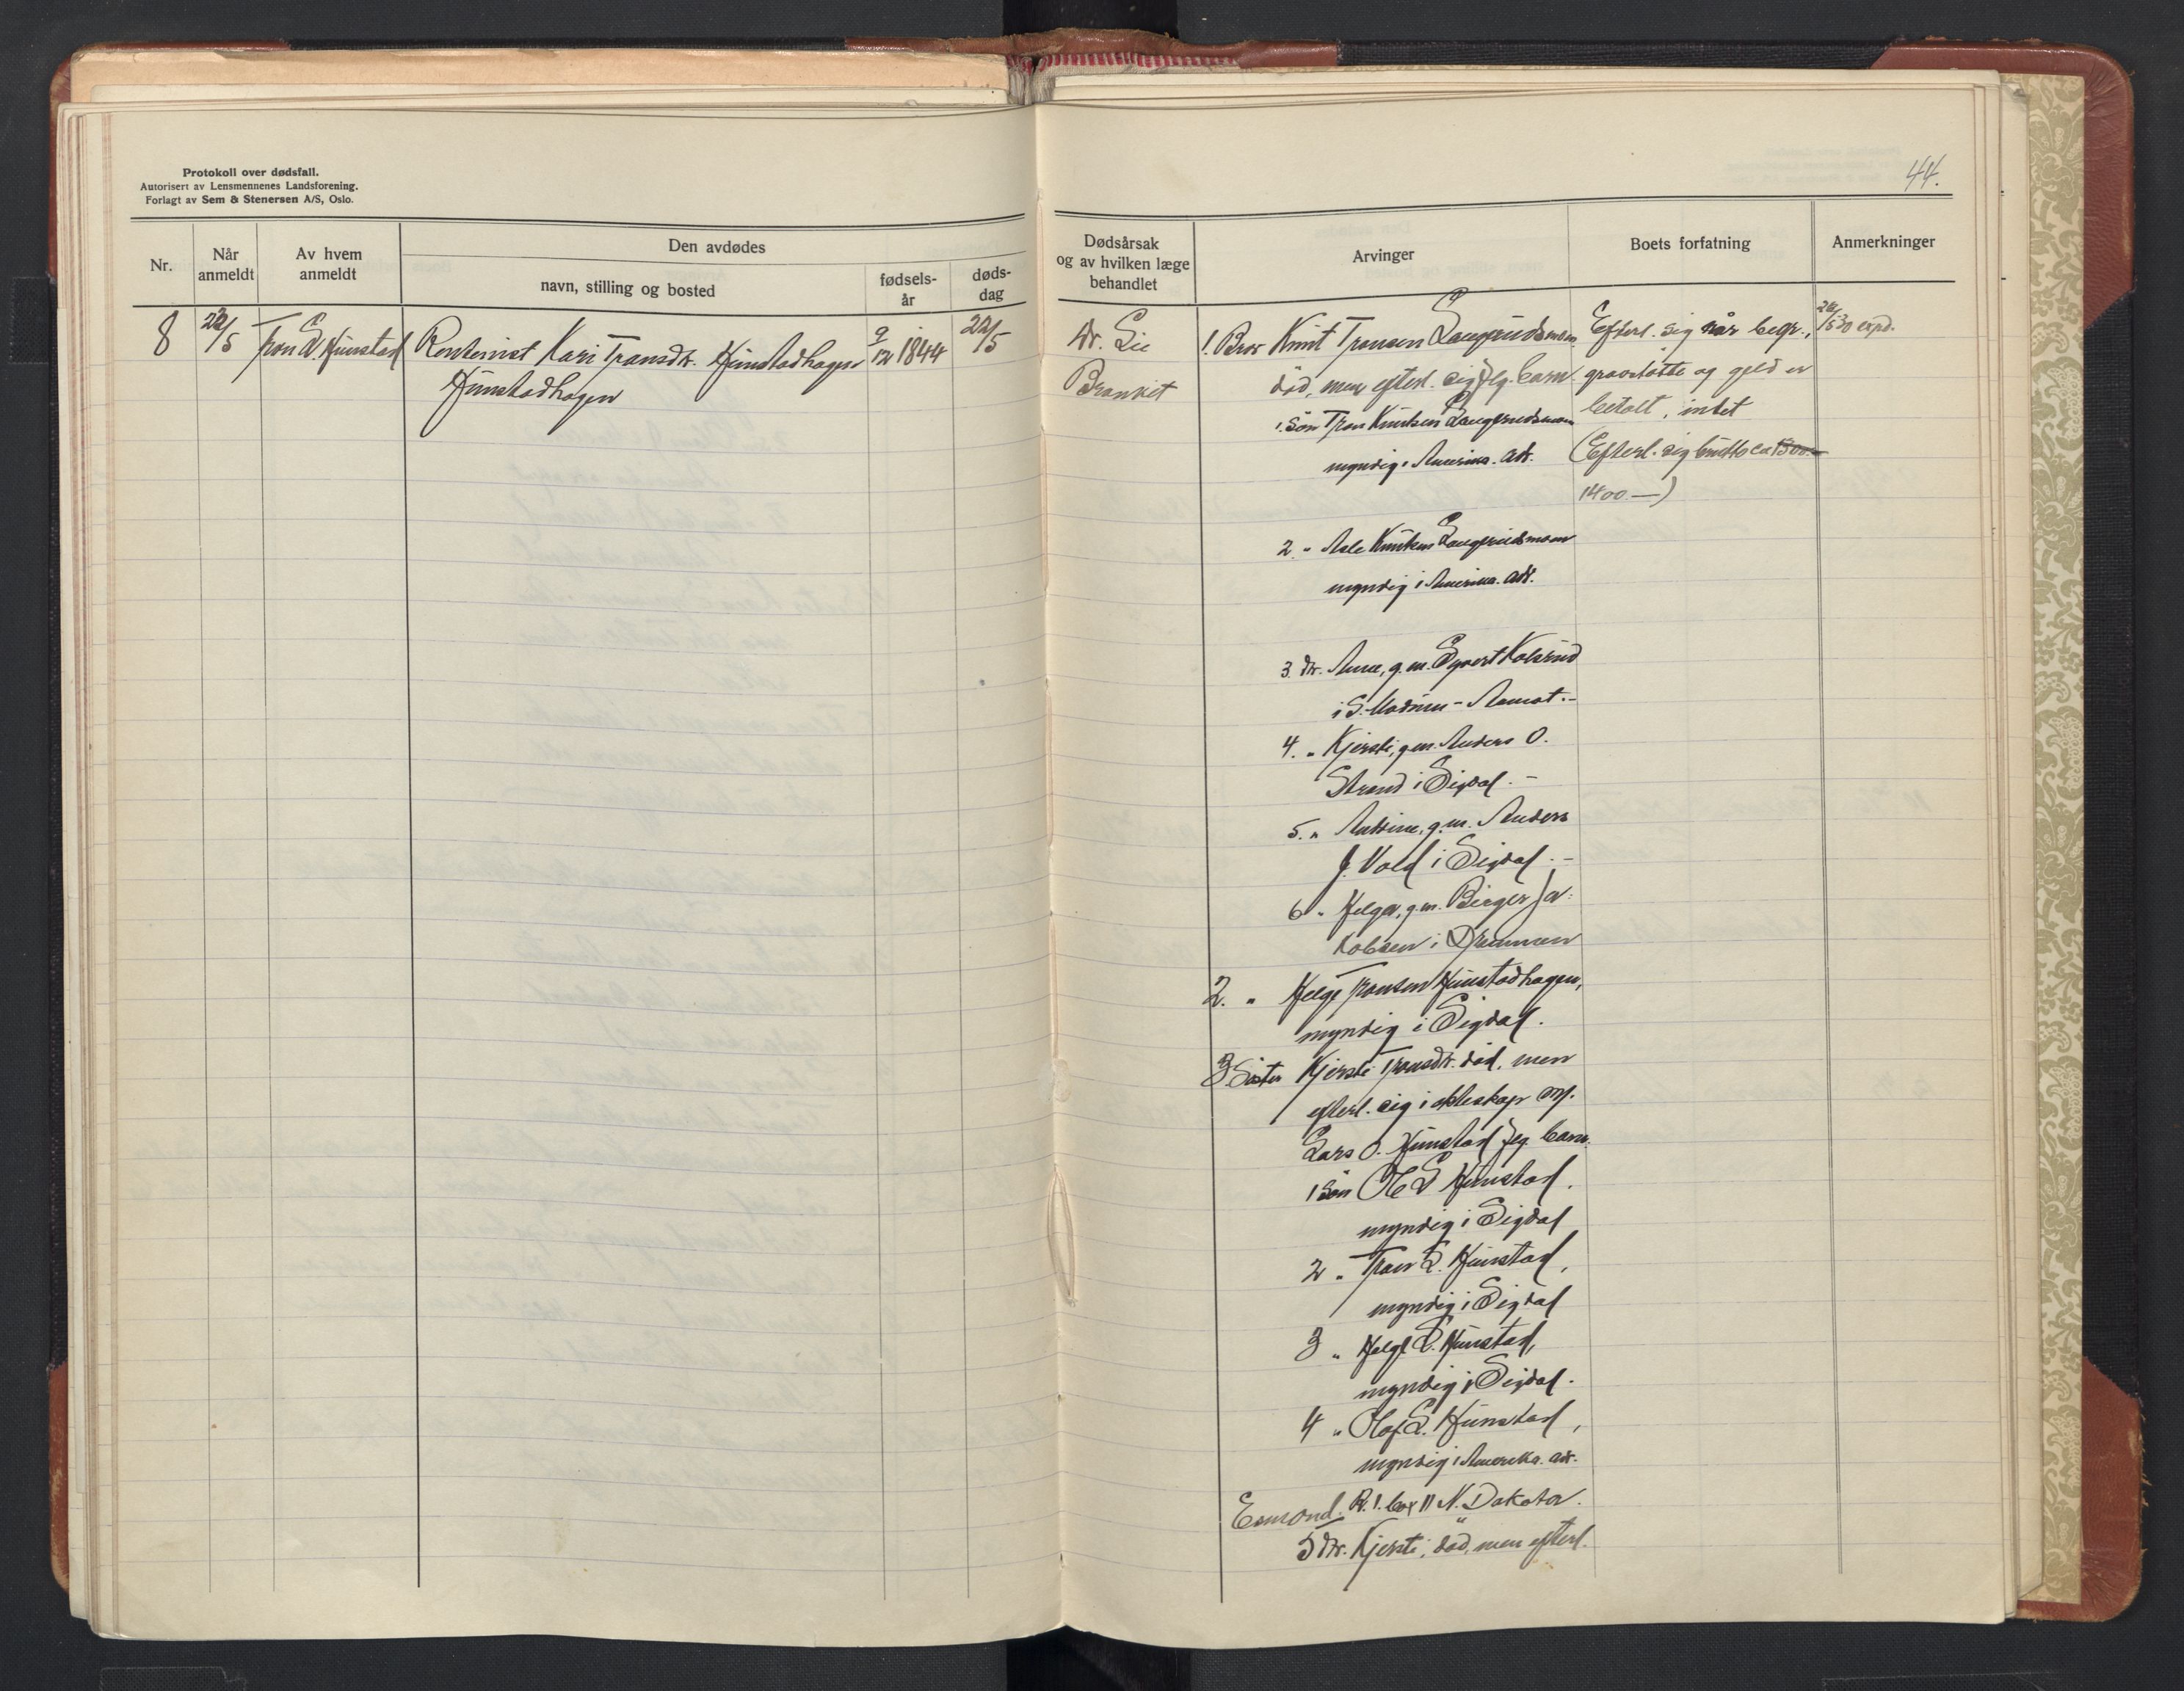 Protokoll over dødsfall.
Autorisert av Lensmennenes Landsforening.
Forlagt av Sem & Stenersen A/S, Oslo.
44.
Nr.
Når anmeldt
Av hvem anmeldt
Den avdødes
navn, stilling og bosted
fødsels-
år
døds-
dag
Dødsårsak
og av hvilken læge
behandlet
Arvinger
Boets forfatning
Anmerkninger
8
22/5
Tron L. Hunstad
Rentenist Kari Transdtr. Hunstadhagen
Hunstadhagen
9/12 1844
22/5
Dr. Lie
Bronkit
1. Bror Knut Tronsen Laugerudsmoen
død, men efterl. sig flg. barn
1. Søn Tron Knutsen Laugerudsmoen
myndig i Amerika. adr.
2. " Asle Knutsen Laugerudsmoen
myndig i Amerika. adr.
3. Dtr. Anne, g.m. Syvert Kolsrud
i S. Modum - Aamot.-
4. " Kjersti, g.m. Anders O.
Strand i Sigdal.-
5. " Andrine, g.m. Anders
J. Vold i Sigdal.-
6 " Helga, g.m. Birger Ja-
kobsen i Drammen
2. " Helge Tronsen Hunstadhagen,
myndig i Sigdal.
3 Søster Kjersti Tronsdtr. død, men
efterl. sig i ekteskap m/.
Lars O. Hunstad flg. barn.
1 Søn Ole L Hunstad.
myndig i Sigdal
2 " Tron L. Hunstad,
myndig i Sigdal
3 " Helge L. Hunstad,
myndig i Sigdal.
4 " Olaf L. Hunstad,
myndig i Amerika. adr.
Esmond. R. 1. box 11 N. Dakota.
5 Dtr. Kjersti, død, men efterl.
Efterl. sig når begr.,
gravstøtte og gjeld er
betalt, intet
(Efterl. sig brutto ca 1500.-
1400.—)
26/5 30 expd.